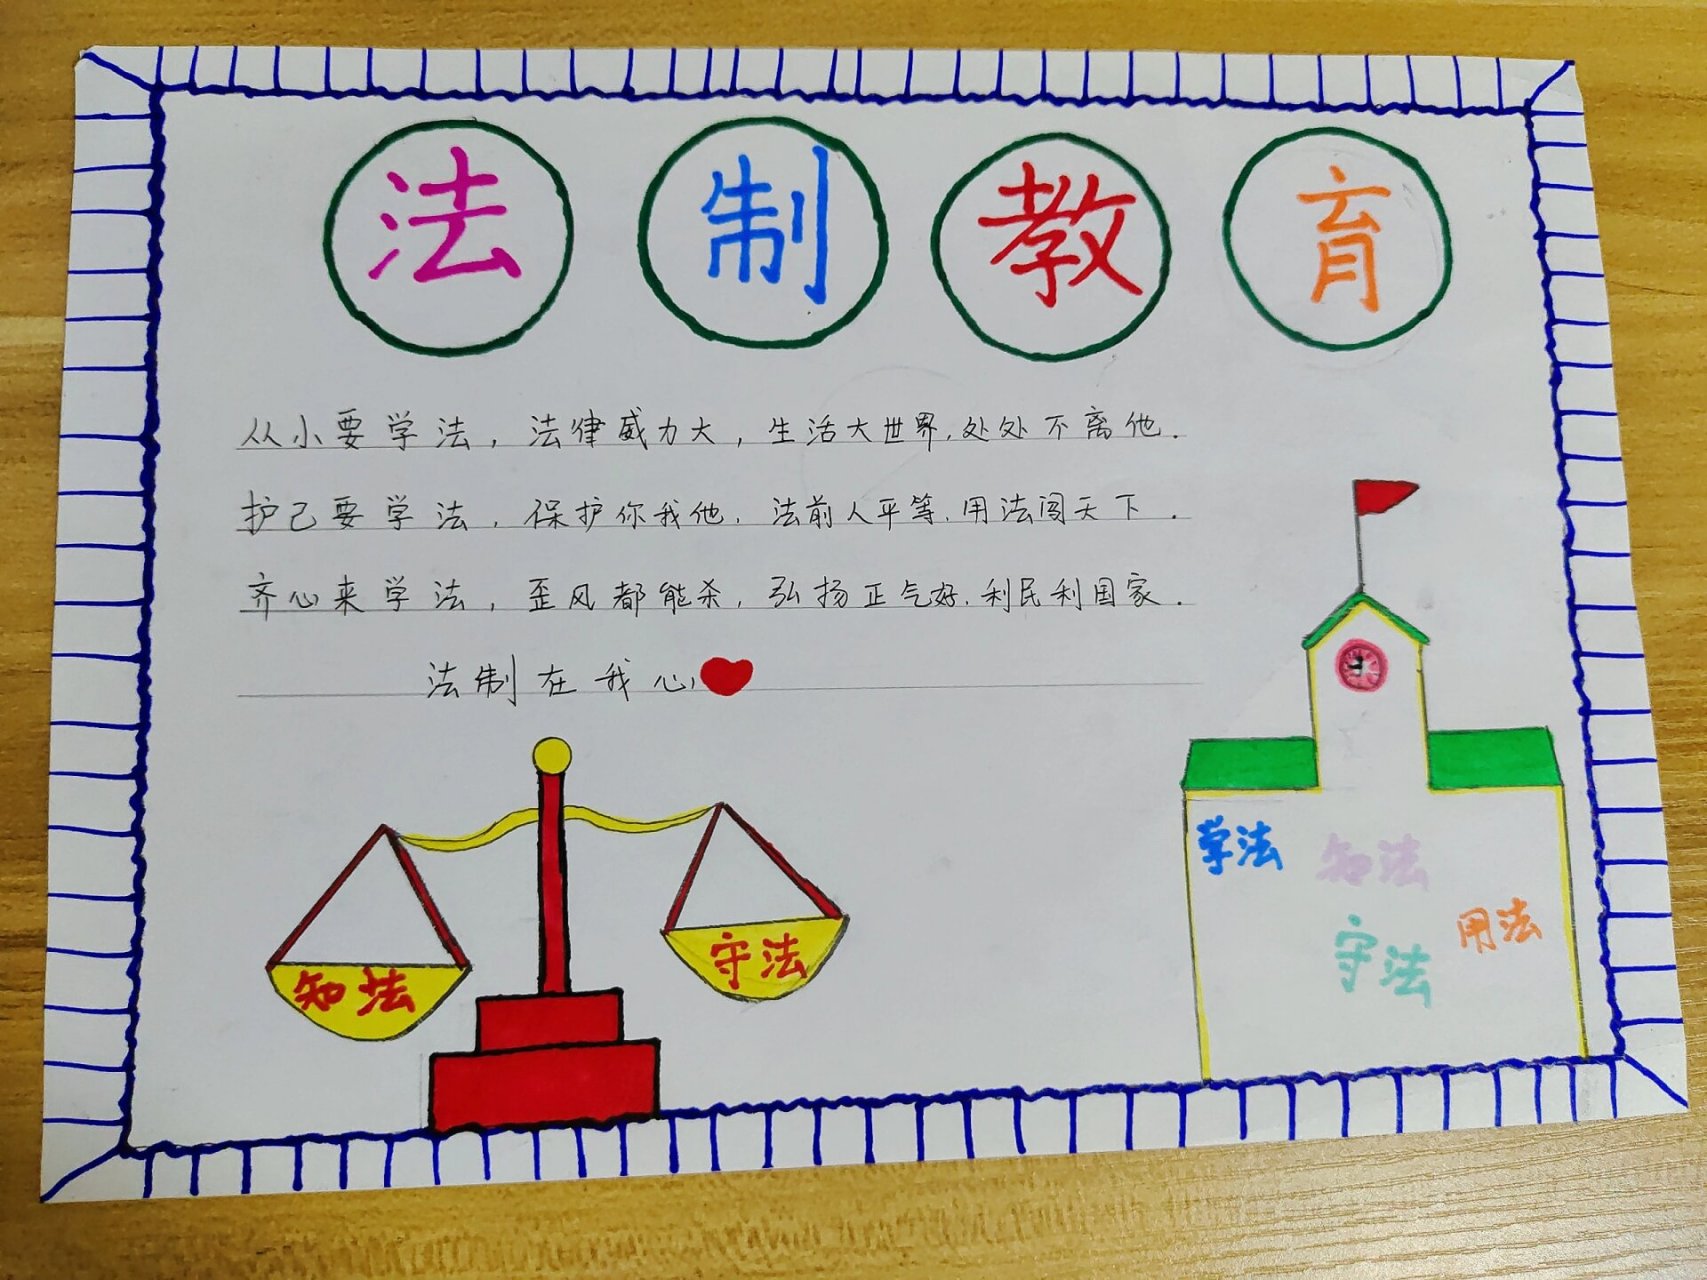 法制教育
从小要学法，法律威力大，生活大世界，处处不离他．
护己要学法，保护你我他，法前人平等，用法闯天下．
齐心来学法，歪风都能杀，弘扬正气好，利民利国家．
法制在我心
知法
守法
学法
知法
用法
守法